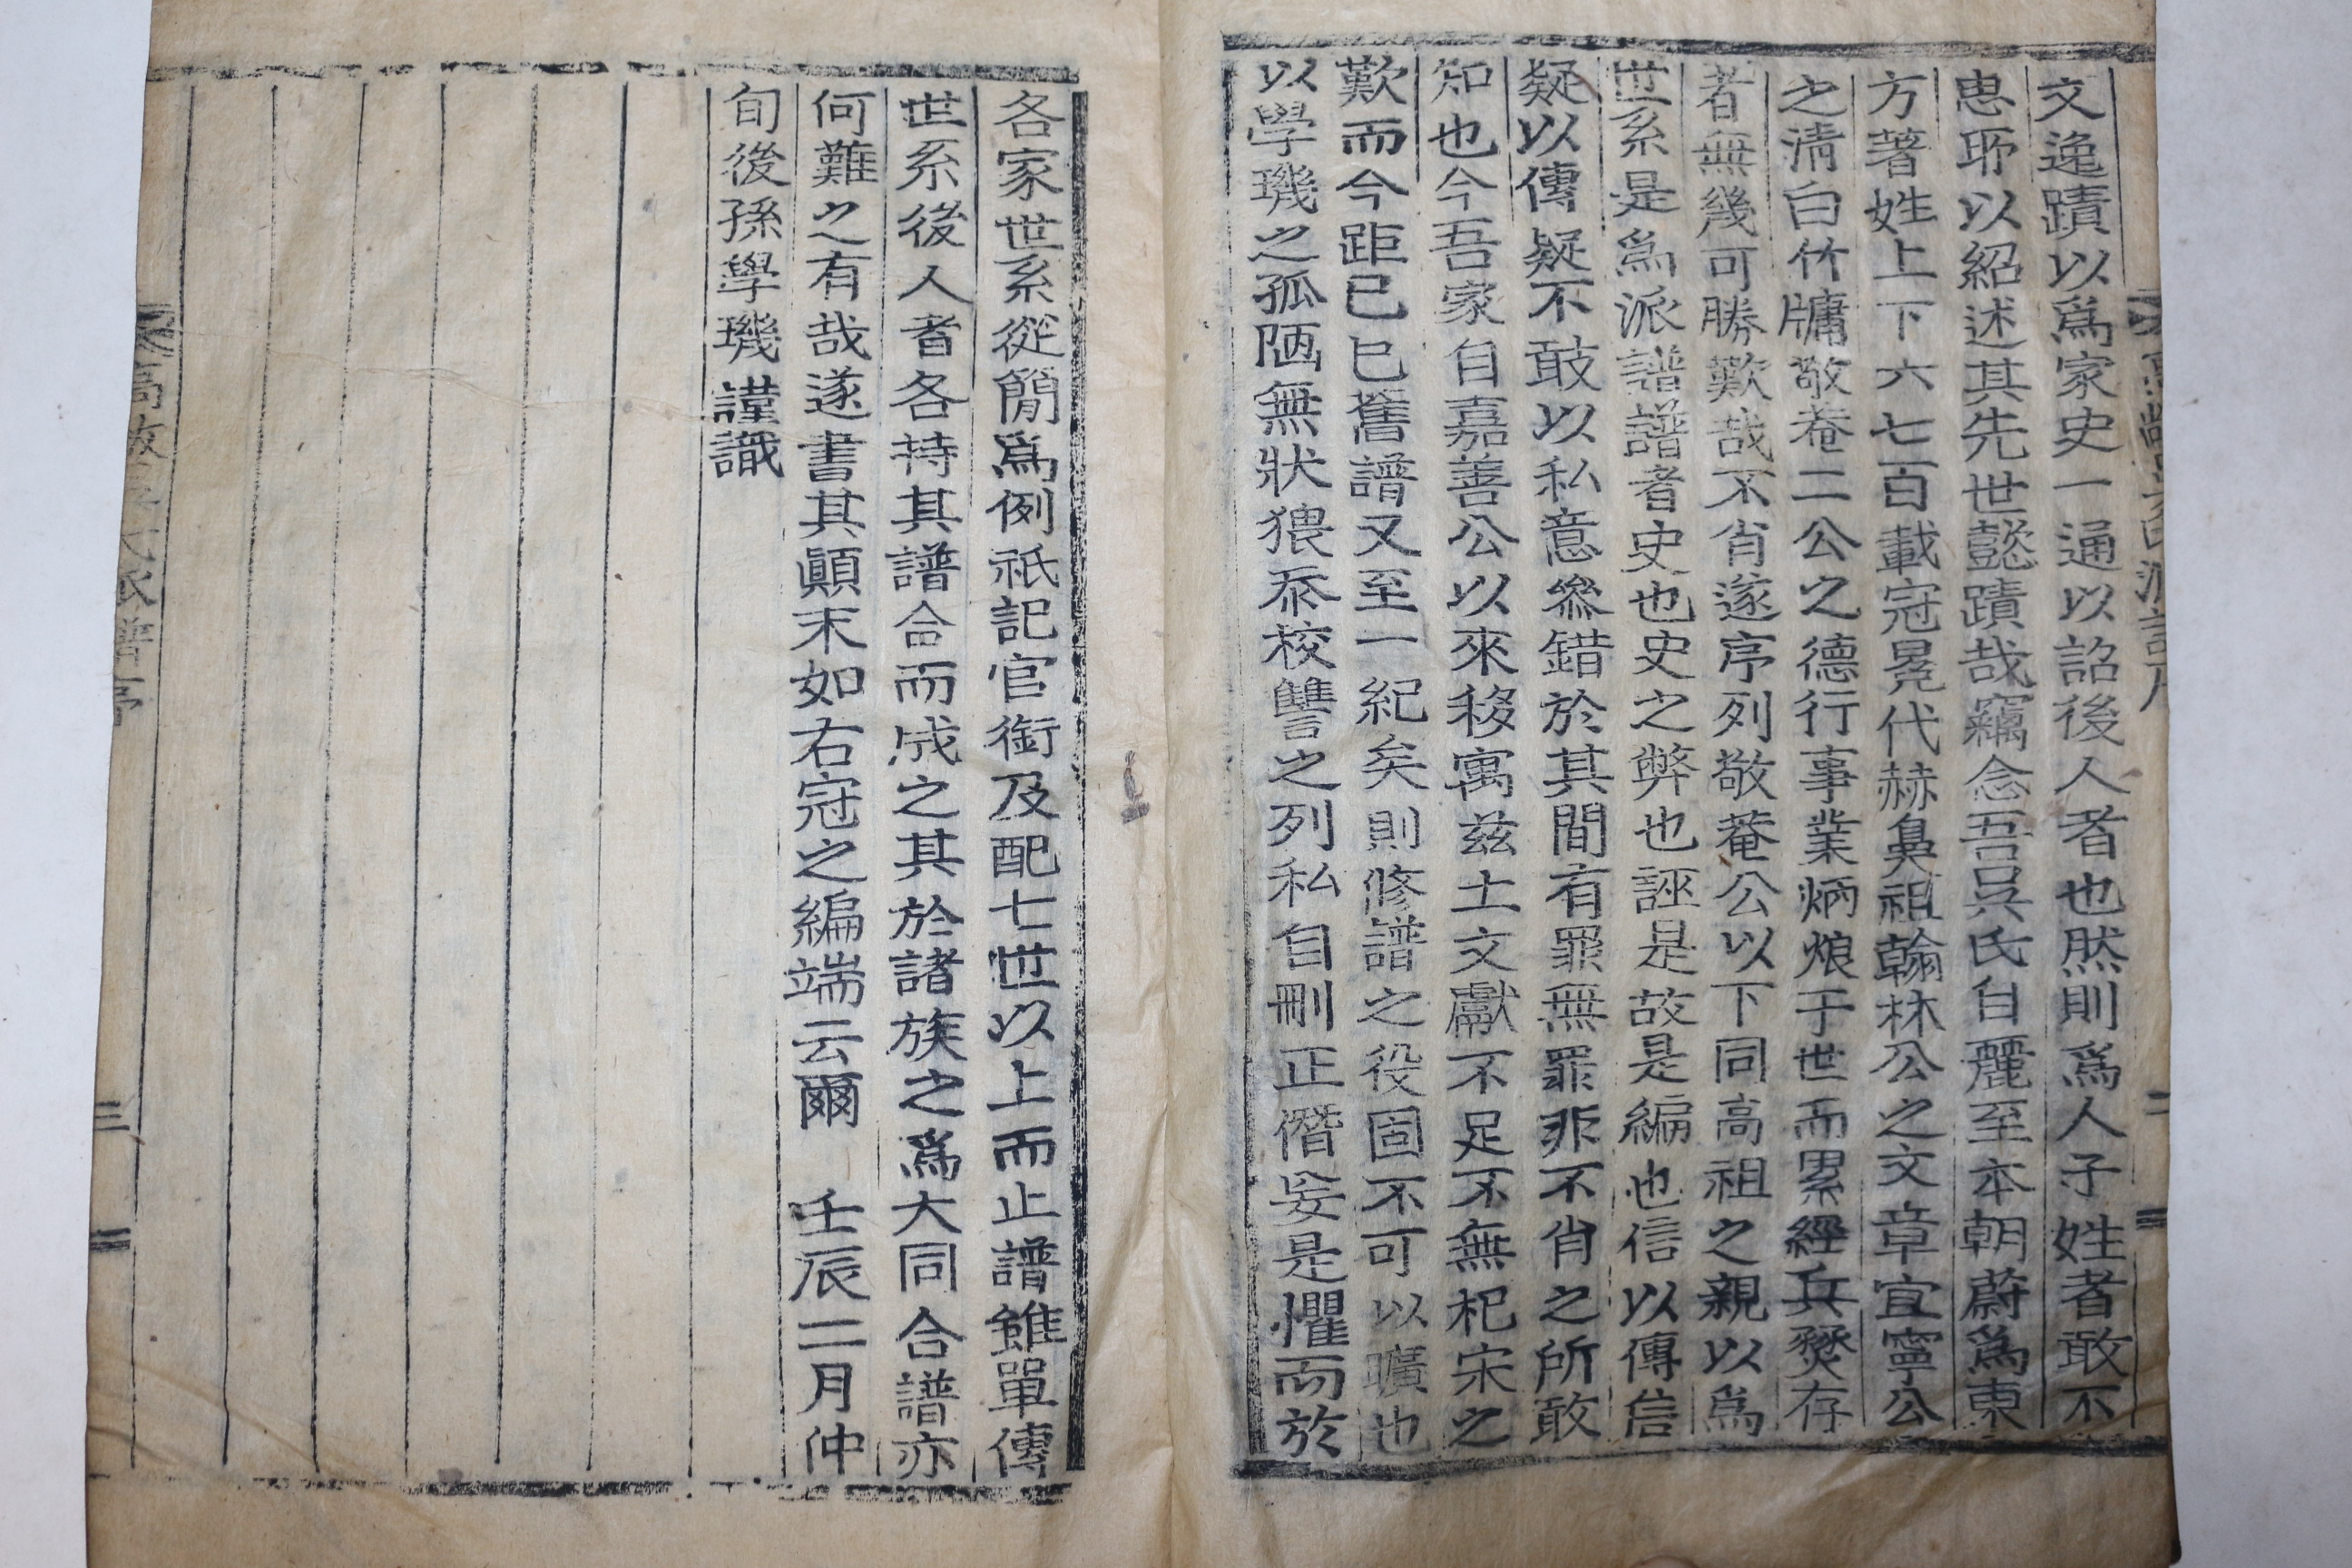 文逸蹟以爲家史一通以詔後人者也然則爲人子姓者敢不
思所以紹述其先世懿蹟哉竊念吾吳氏自麗至本朝蔚爲東
方著姓上下六七百載冠冕代赫鼻祖翰林公之文章宜寧公
之淸白竹牗敬菴二公之德行事業炳烺于世而累經兵燹存
者無幾可勝歎哉不肖遂序列敬菴公以下同高祖之親以爲
世系是爲派譜譜者史也史之弊也誣是故是編也信以傳信
疑以傳疑不敢以私意叅錯於其間有罪無罪非不肖之所敢
知也今吾家自嘉善公以來移寓玆土文獻不足不無杞宋之
歎而今距己巳舊譜又至一紀矣則修譜之役固不可以曠也
以學璣之孤陋無狀猥忝校讐之列私自刪正僭妄是懼而於
各家世系從簡爲例祇記官銜及配七世以上而止譜雖單傳
世系後人者各持其譜合而成之其於諸族之爲大同合譜亦
何難之有哉遂書其顚末如右冠之編端云爾 壬辰二月仲
旬後孫學璣謹識
譜序
三